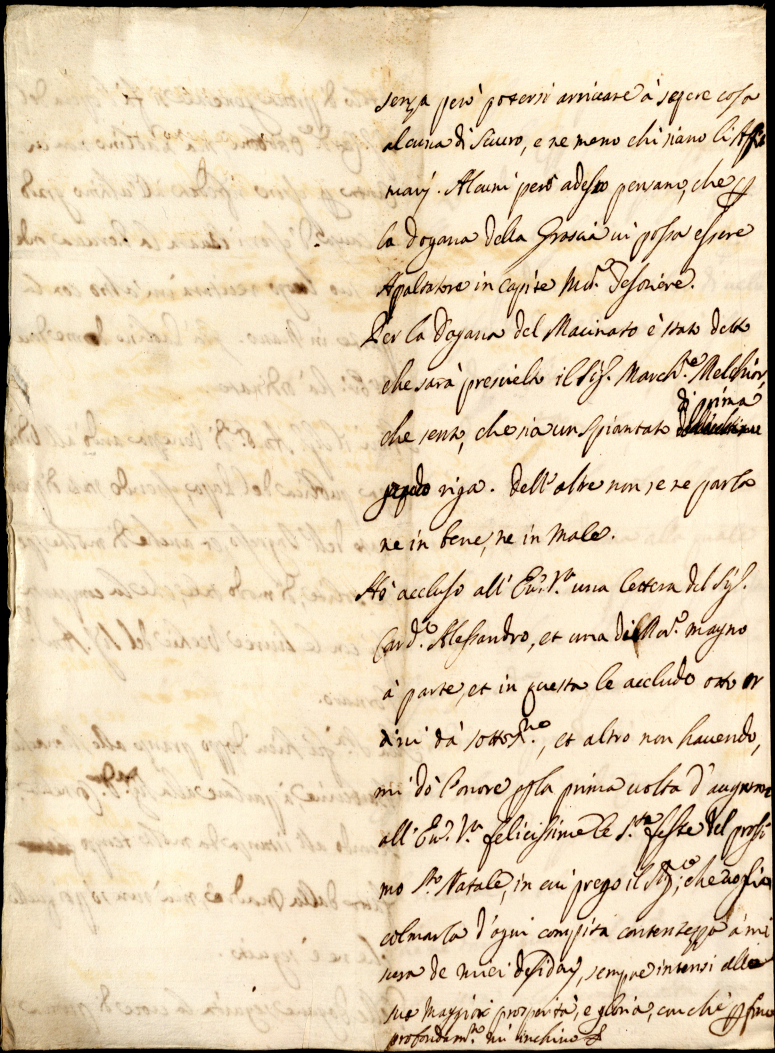 senza però potersi arrivare à sapere cosa
alcuna di sicuro, e ne meno chi siano li Affit
tuarij. Alcuni però adesso pensano, che p
la Dogana della Grascia vi possa essere
Apaltatore in capite
Per la Dogana del Macinato è stato detto
che sarà prescielto il Sig.r March.e Melchior,
che sento, che sia un spiantato di prima
riga. Dell'altre non se ne parla
ne in bene, ne in Male.
Hò accluso all'Em.a V.a una lettera del Sig.
Card.e Alessandro, et una di magno
à parte, et in questa le accludo otto or
dini dà sottos.e, et altro non havendo,
mi dò l'onore p la prima volta d'augurare
all'Em.a V.a felicissime le S.te feste del prossi
mo S.to Natale, in cui prego il Sig.re, che voglia
colmarla d'ogni compita contentezza à mi
sura de miei desiderij, sempre intensi alle
sue Maggiori prosperità, e gloria, con che p fine
profondam.te m'inchino